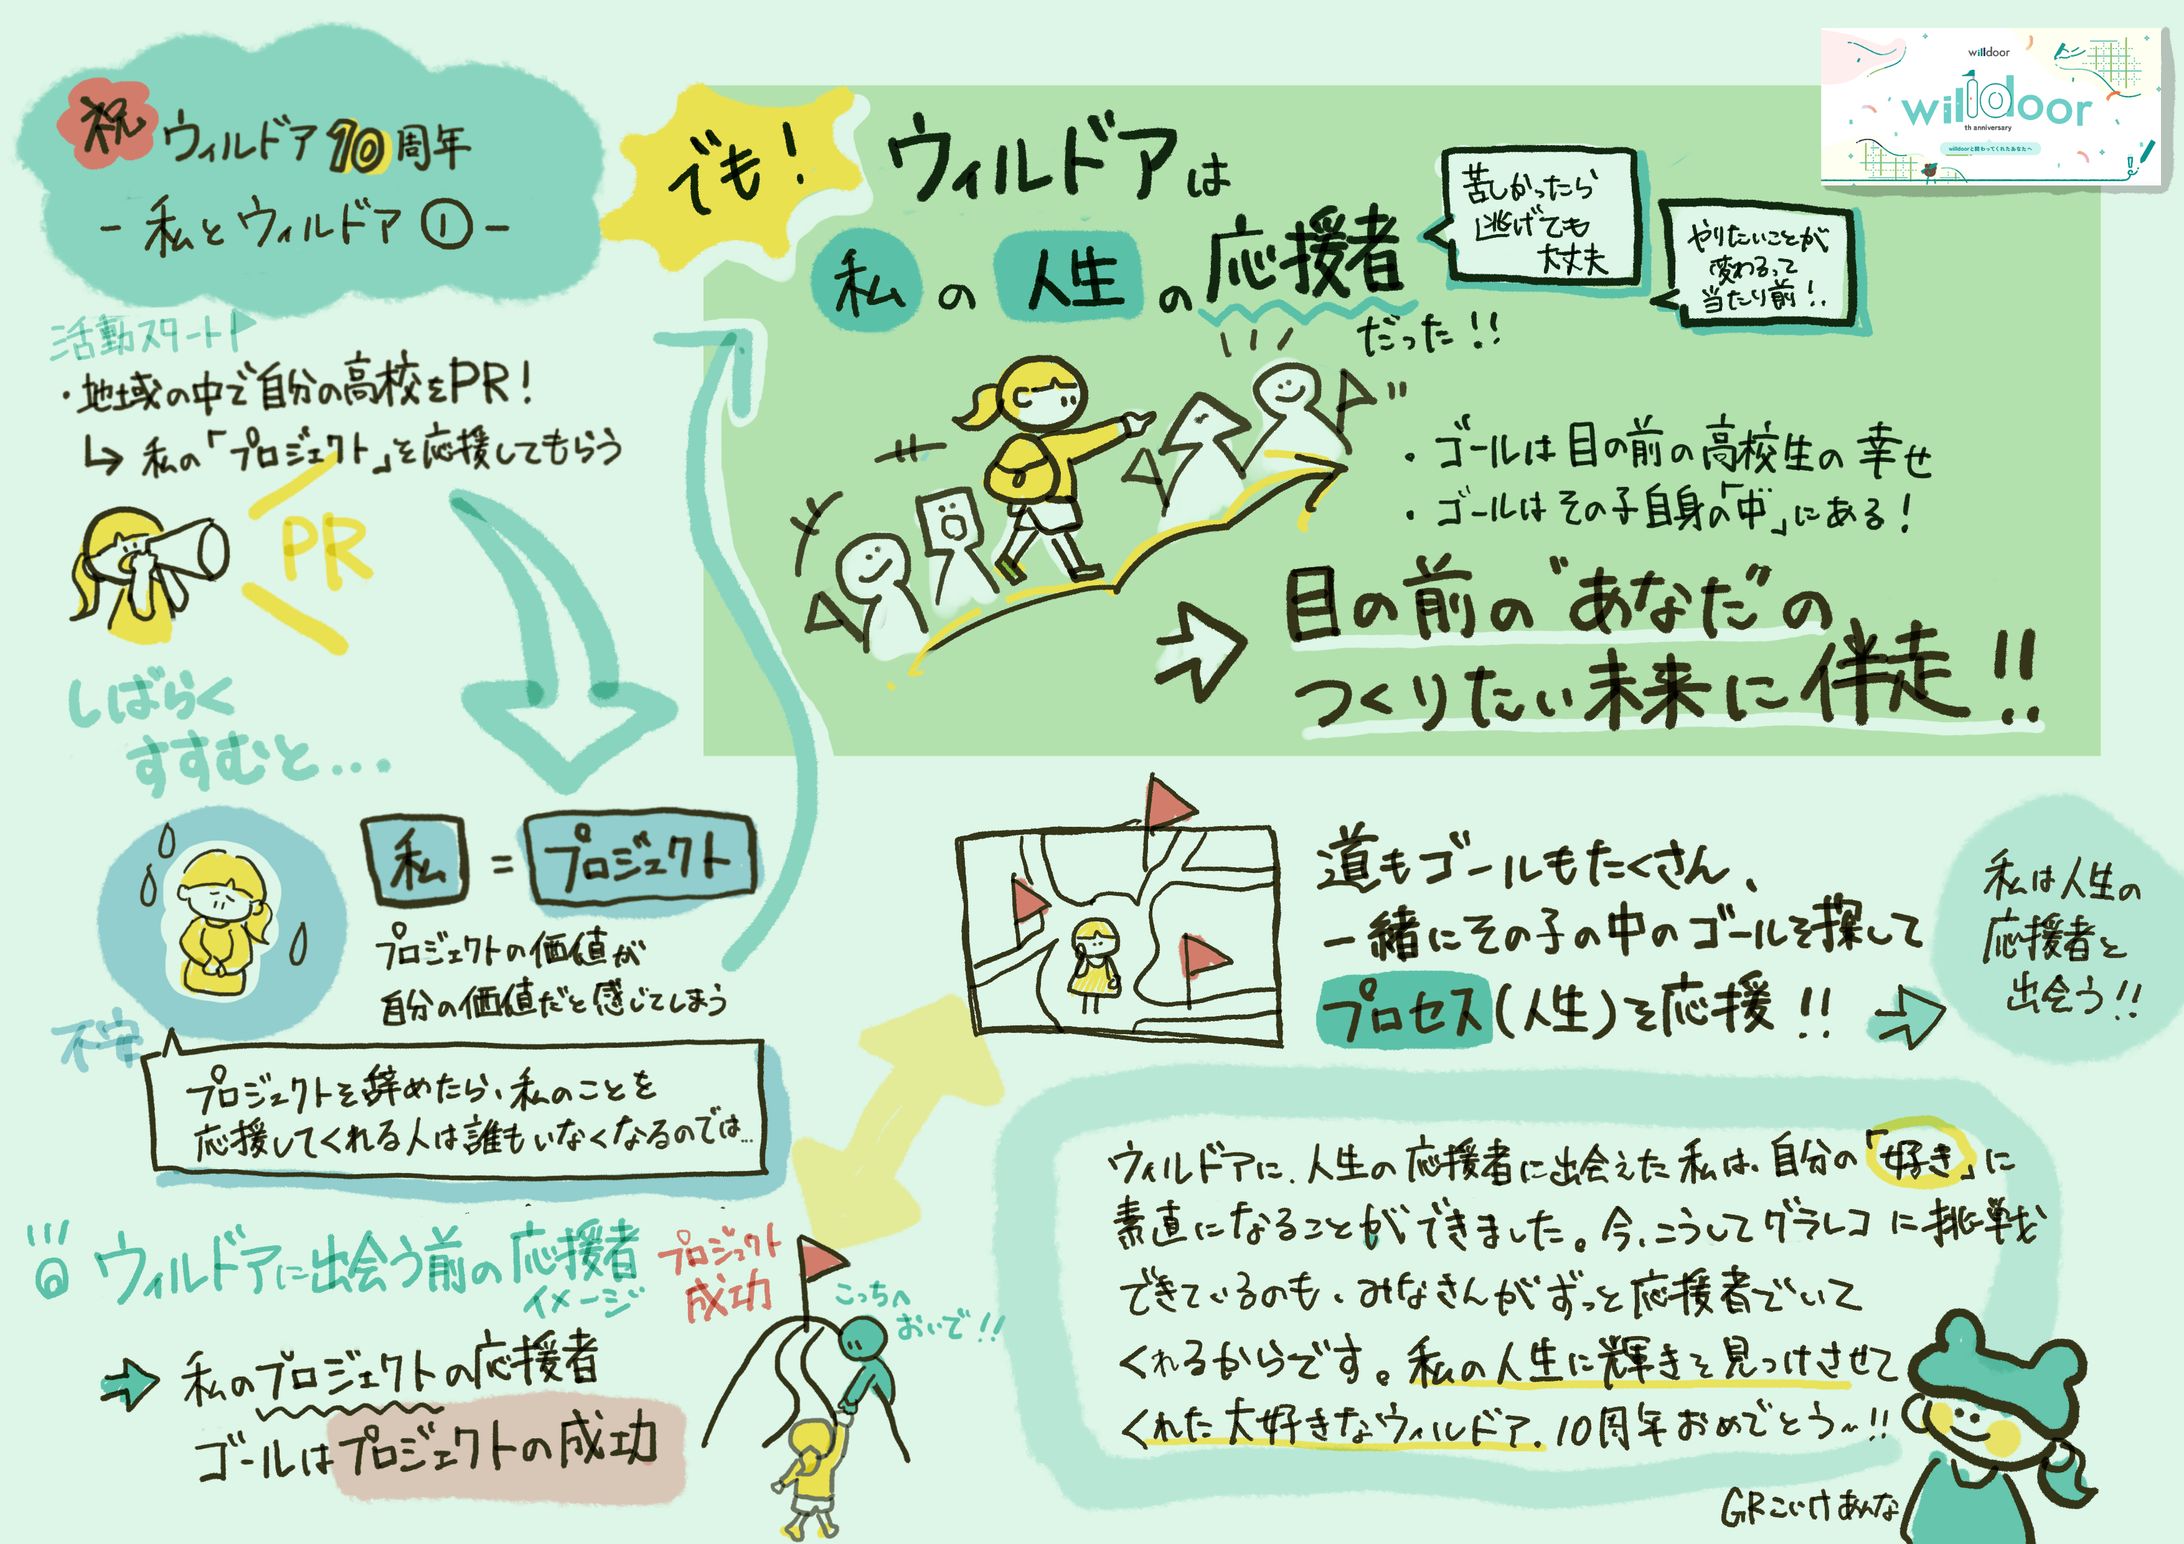 祝 ウィルドア10周年
- 私とウィルドア① -
活動スタート！
・地域の中で自分の高校をPR！
↳ 私の「プロジェクト」を応援してもらう
PR
しばらく
すすむと...
私 = プロジェクト
プロジェクトの価値が
自分の価値だと感じてしまう
不安
プロジェクトを辞めたら、私のことを
応援してくれる人は誰もいなくなるのでは...
ウィルドアに出会う前の応援者
イメージ
→ 私のプロジェクトの応援者
ゴールはプロジェクトの成功
プロジェクト
成功
こっちへ
おいで!!
でも！
ウィルドアは
私の人生の応援者
だった!!
苦しかったら
逃げても
大丈夫
やりたいことが
変わるって
当たり前！
willdoor
willdoor
th anniversary
willdoorと関わってくれたあなたへ
・ゴールは目の前の高校生の幸せ
・ゴールはその子自身の「中」にある！
→ 目の前の"あなた"の
つくりたい未来に伴走!!
道もゴールもたくさん、
一緒にその子の中のゴールを探して
プロセス(人生)を応援!!
→ 私は人生の
応援者と
出会う!!
ウィルドアに、人生の応援者に出会えた私は、自分の「好き」に
素直になることができました。今、こうしてグラレコに挑戦
できているのも、みなさんがずっと応援者でいて
くれるからです。私の人生に輝きを見つけさせて
くれた大好きなウィルドア、10周年おめでとう〜!!
GRこいけあんな